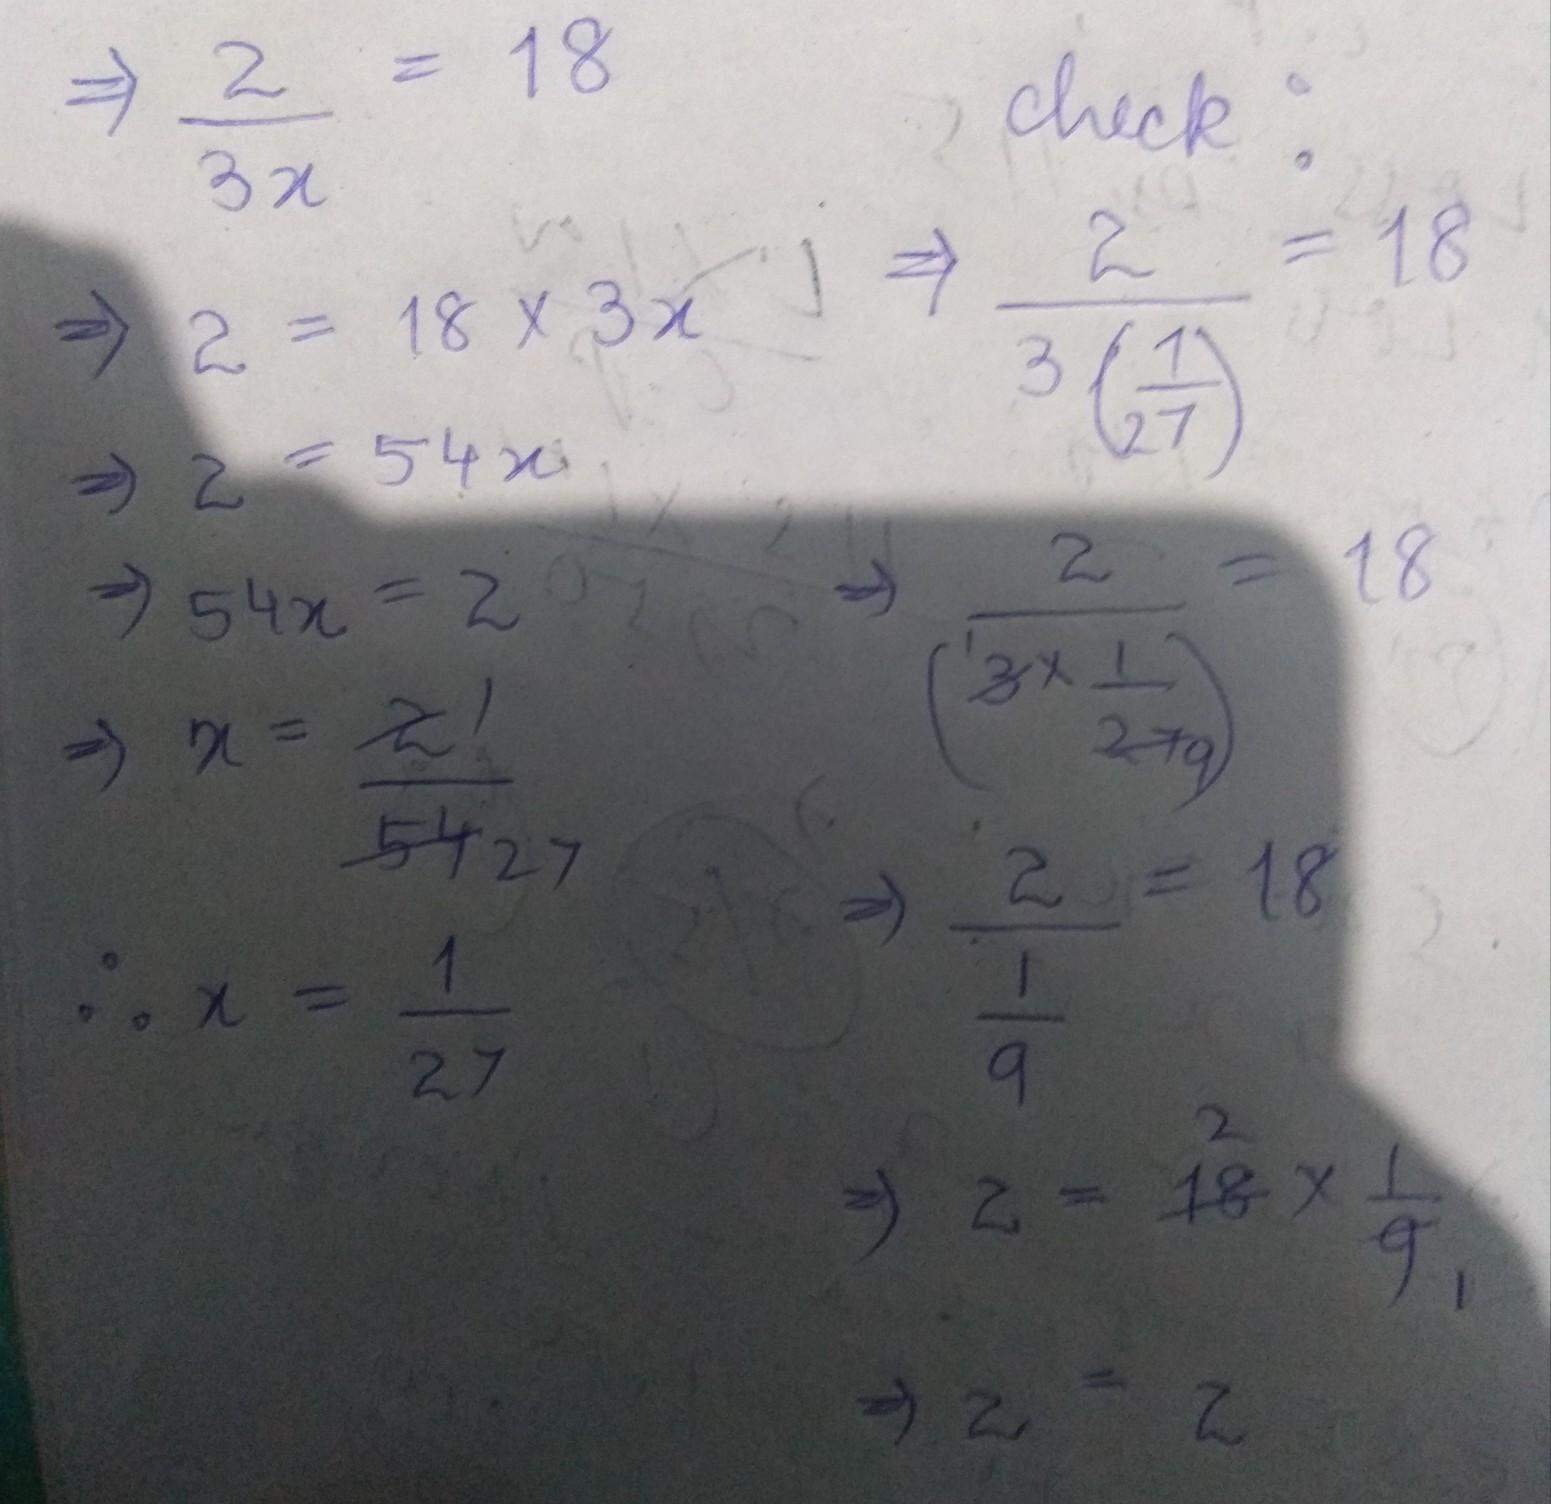 ⇒ 2/3x = 18
⇒ 2 = 18 × 3x
⇒ 2 = 54x
⇒ 54x = 2
⇒ x = 2 1 / 54 27
∴ x = 1/27
check :
⇒ 2 / 3(1/27) = 18
⇒ 2 / (1 3 × 1/27 9) = 18
⇒ 2 / (1/9) = 18
⇒ 2 = 2 18 × 1/9 1
⇒ 2 = 2